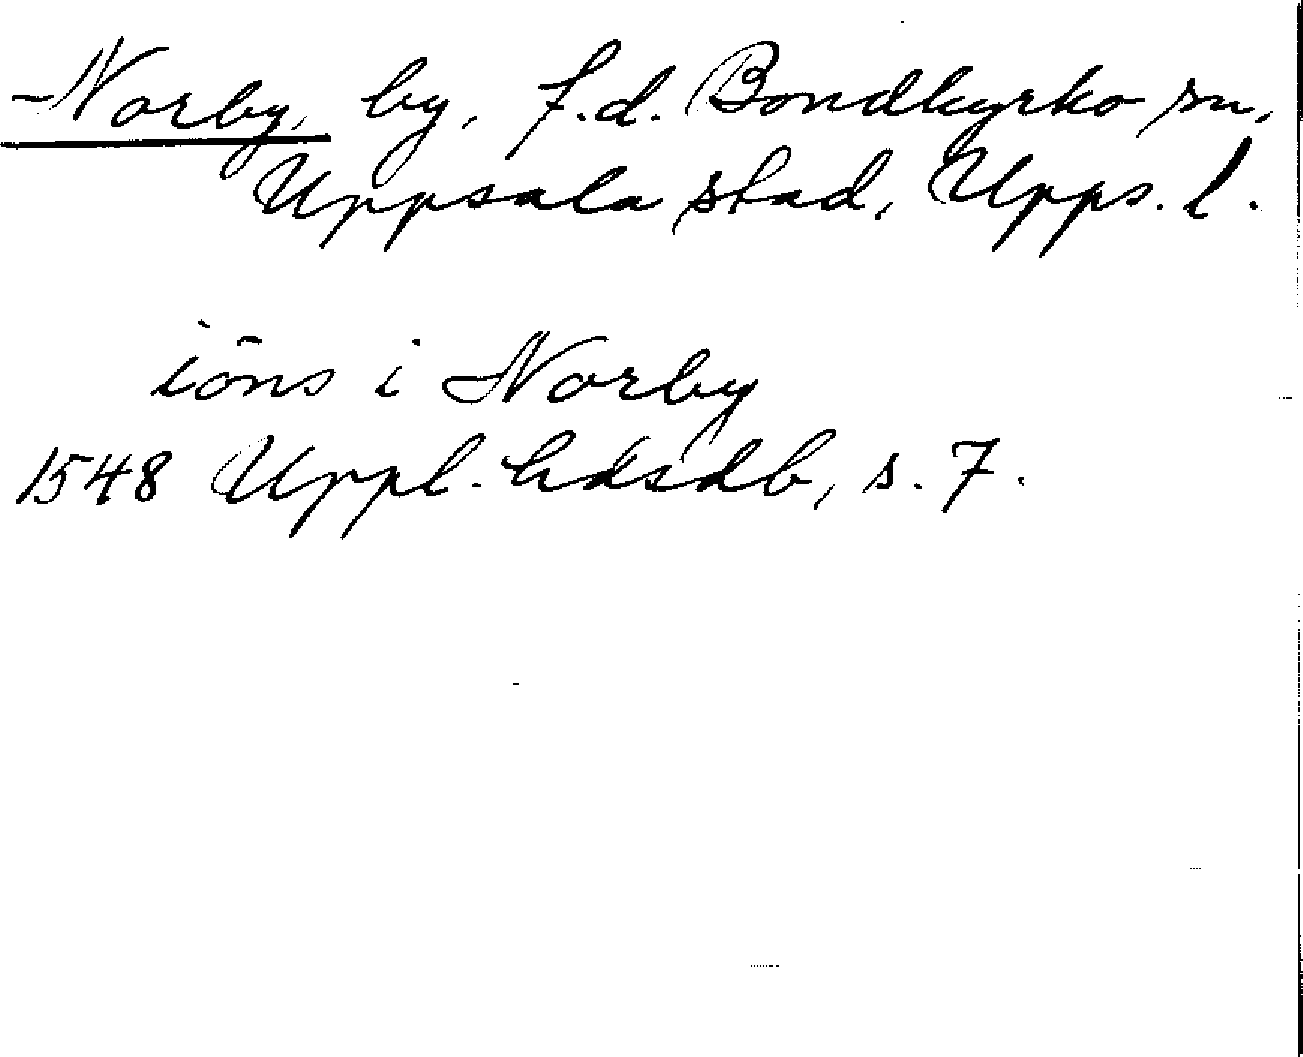 Norby, by, f.d. Bondkyrko sn,
Uppsala stad, Upps. l.
iōns i Norby
1548 Uppl. hdsdb, s. 7.